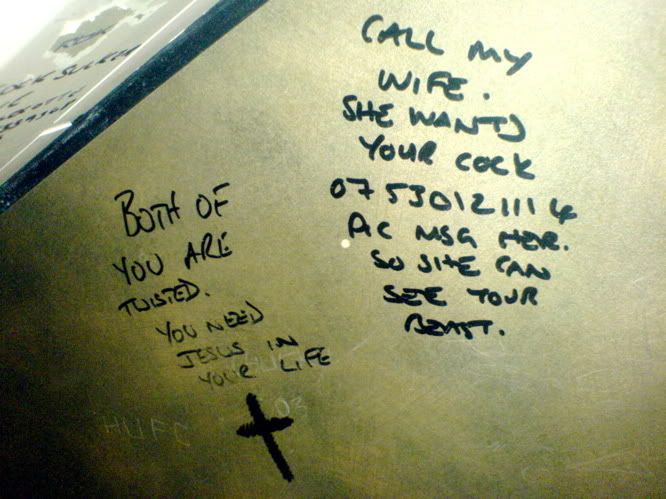 CALL MY
WIFE.
SHE WANTS
YOUR COCK
07530121114
PIC MSG HER.
SO SHE CAN
SEE YOUR
BEAST.
BOTH OF
YOU ARE
TWISTED.
YOU NEED
JESUS IN
YOUR LIFE
03
HUFC